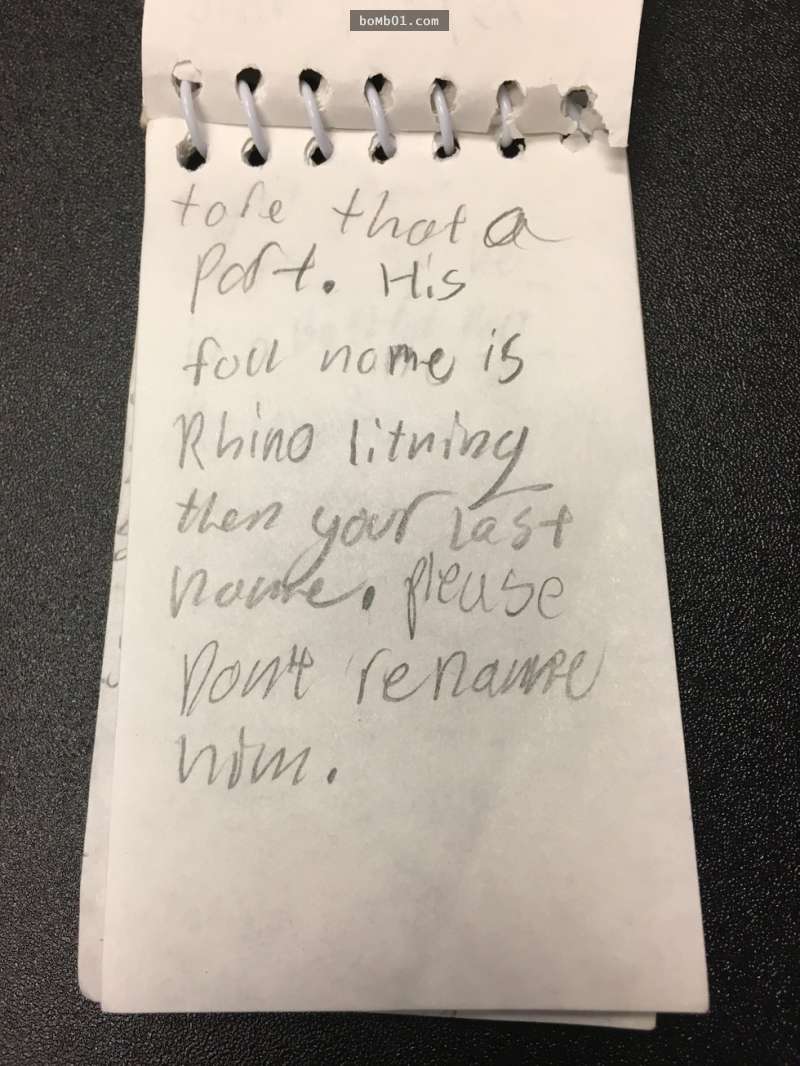 boMb01.com
tore that a
Part. His
full name is
Rhino litning
then your Last
name. please
Don't rename
him.